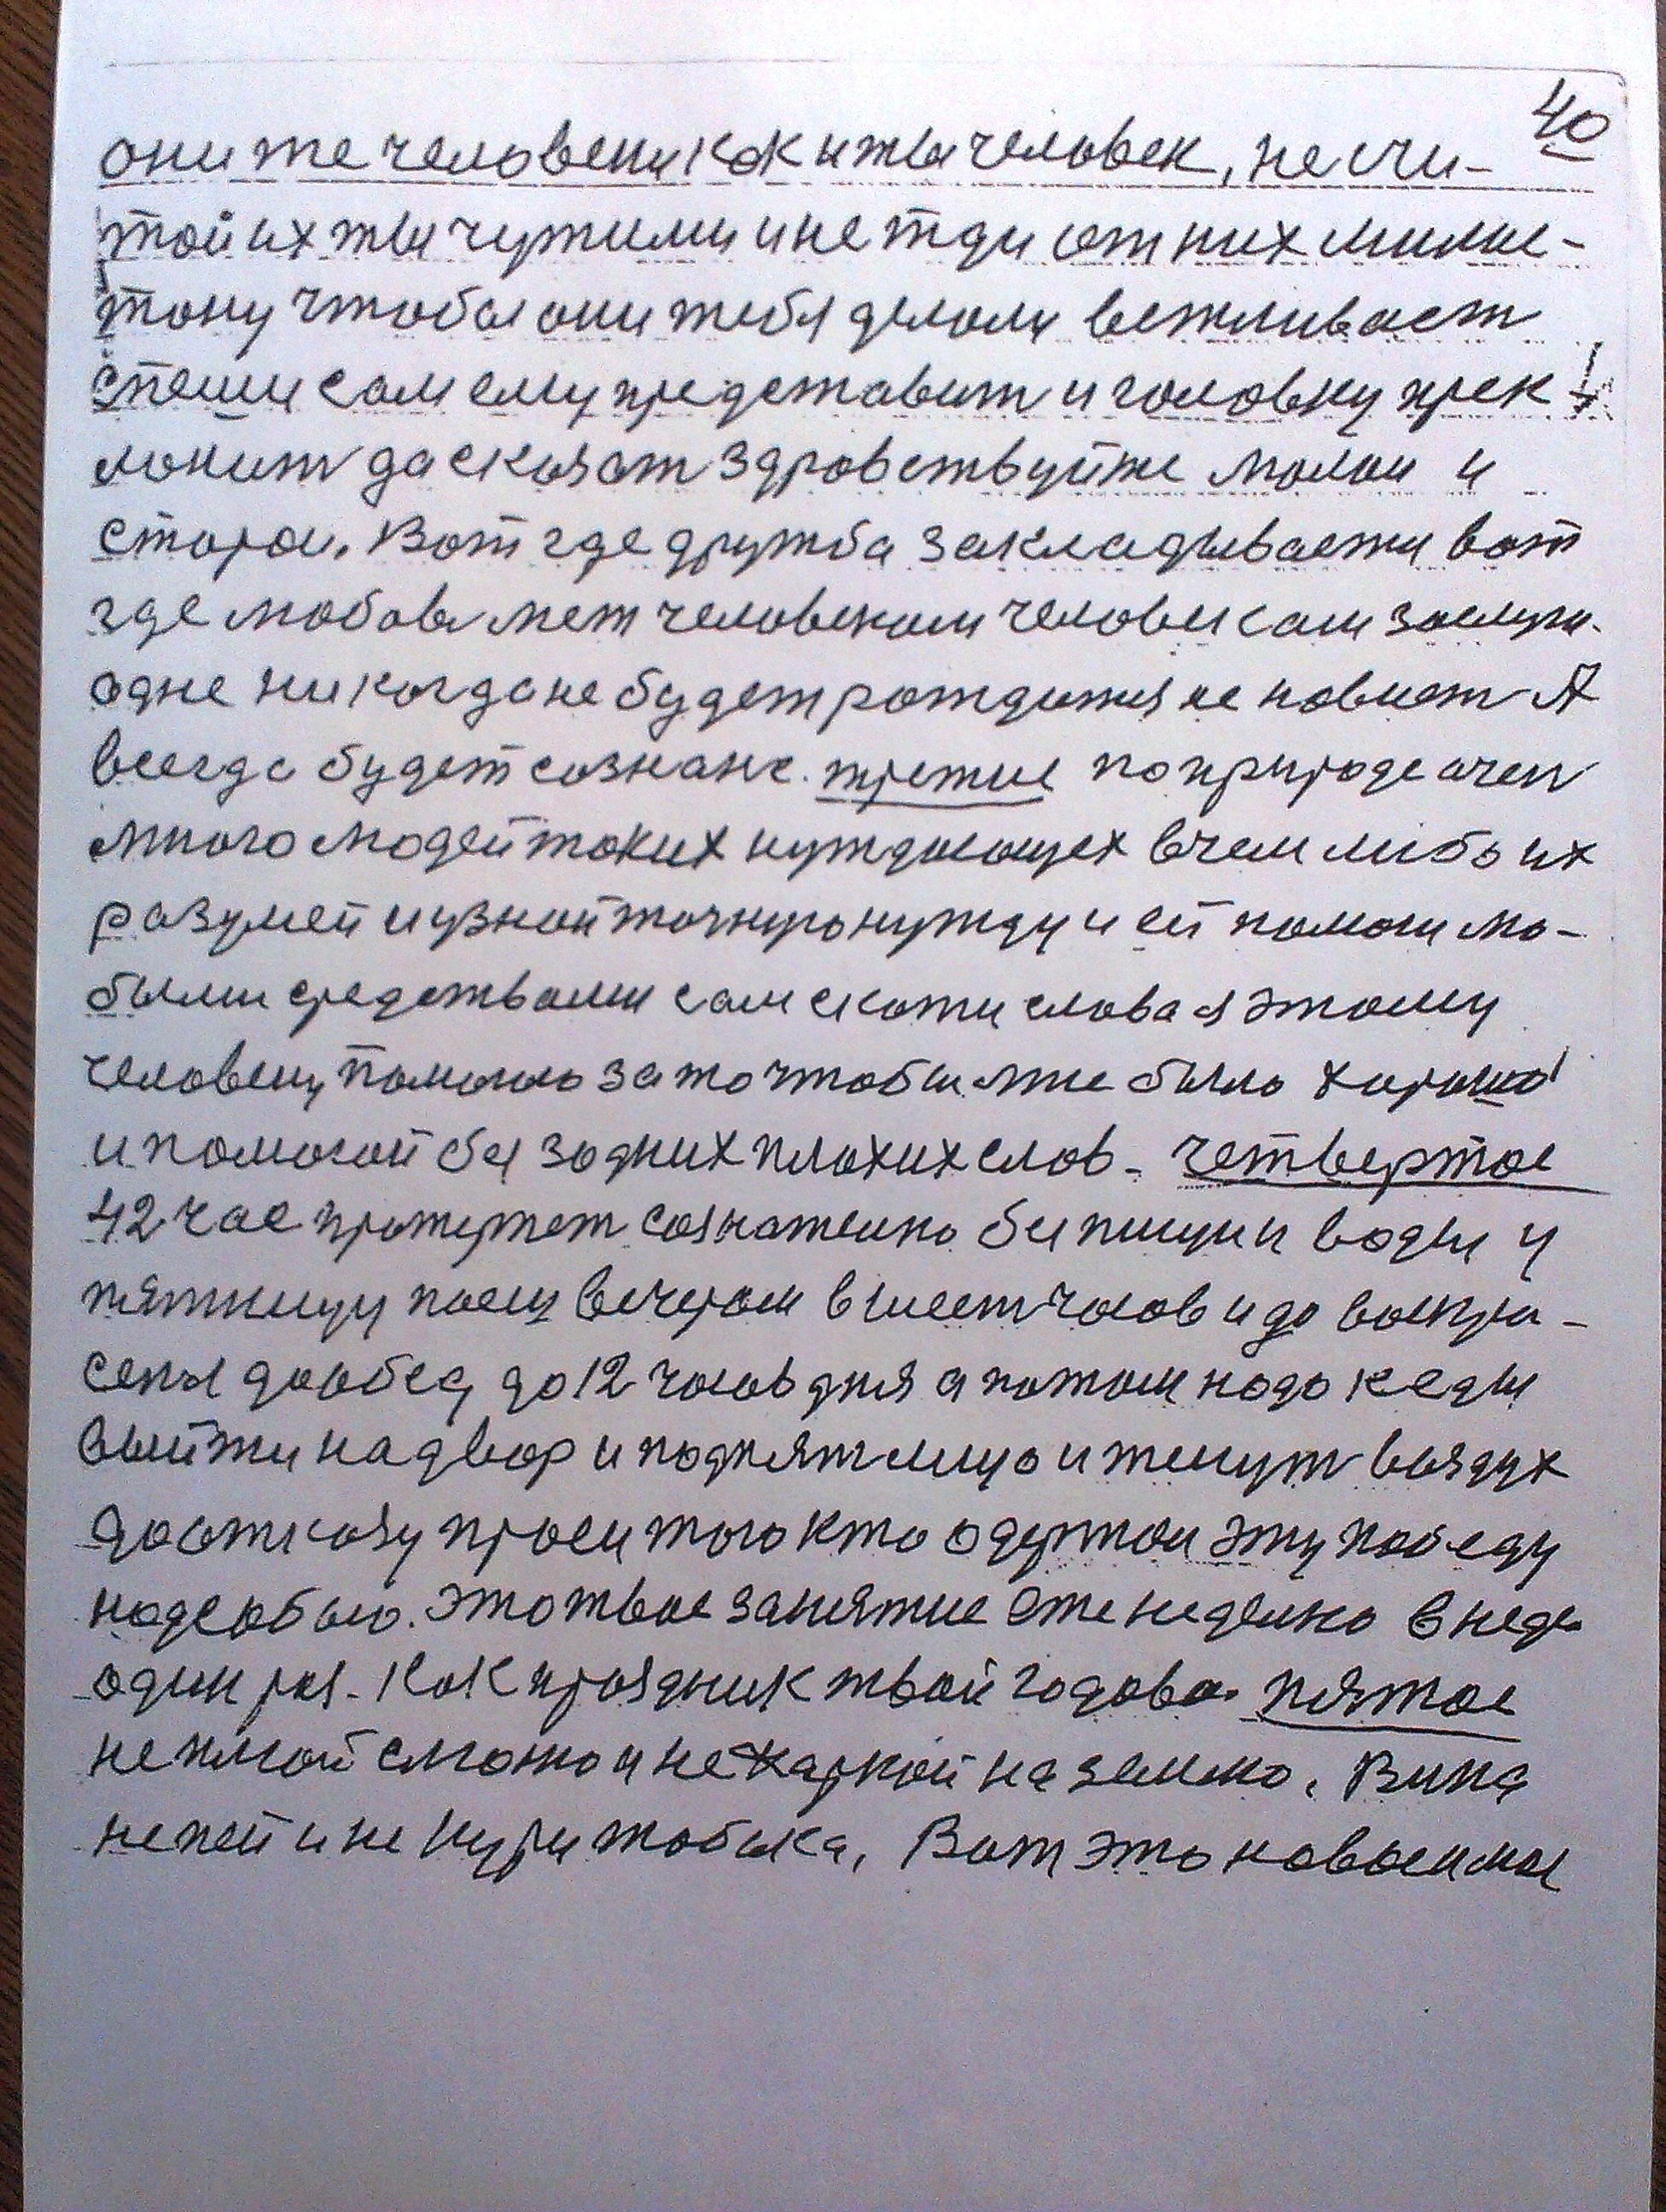 40
они же человеки как и ты человек, не счи-
тай их ты чужими и не жди от них милос-
тону чтобы они тебя делали вежливаст
спеши сам ему предетавит и головку прек
лонит да сказат здравствуйте малои и
старои. Вот где дружба закладываети вот
где любовь меж человеком человек сам заслужи-
одне никогда не будет рождатия не новиет А
всегда будет сознане. третие по природе очен
много людей таких нуждающех в чем либо их
разумей и узнай точную нужду и ей помоги лю-
быми средствами сам скажи слова я этому
человеку помогаю за то чтобы мне было хорошо
и помогай без задних плохих слов - четвертое
42 час продержет сознателно без пищи и воды у
пятницу поеш вечером в шест часов и до воскри-
сеня до обед до 12 часов дня а потом надо к еды
выйти на двор и поднят лицо и тенут воздух
до отказу проси того кто одержал эту победу
над собою. Это твое занятие еженеделно в неде
один раз - как праздник твой годово. пятое
не плюй сможно и не харкай на землю. Вина
не пей и не кури табыка, Вот это